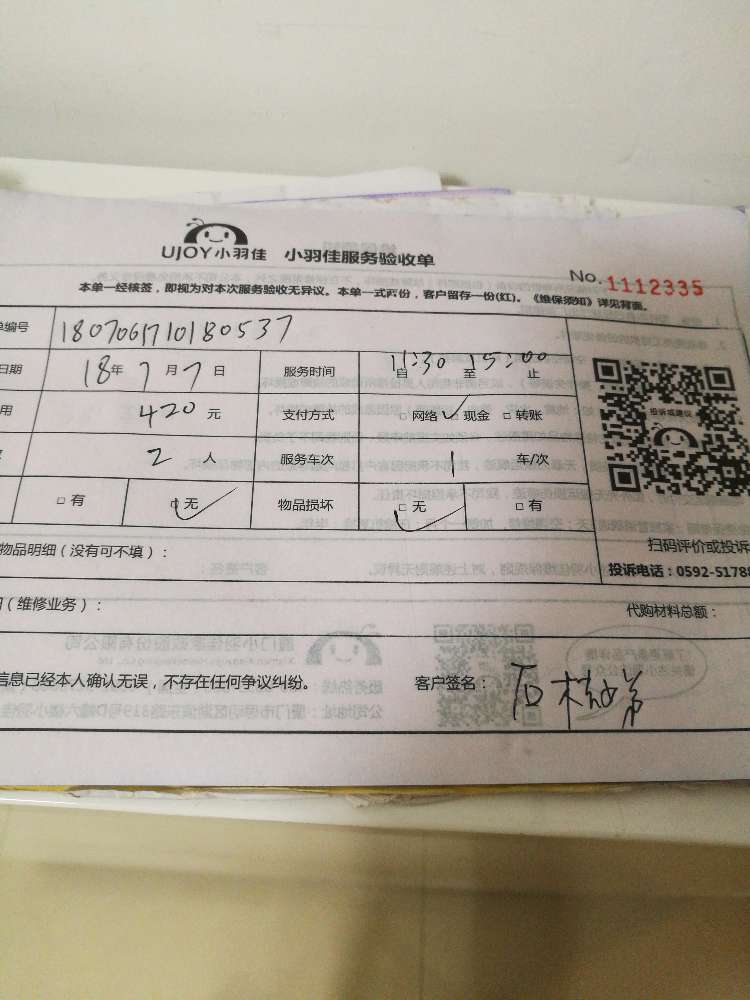 UJOY小羽佳 小羽佳服务验收单
No. 1112335
本单一经核签，即视为对本次服务验收无异议。本单一式两份，客户留存一份(红)。《维保须知》详见背面。
单编号 180706171018053７
日期 18年 7月 7日 服务时间 11:30 自 至 15:00 止
用 420 元 支付方式 □ 网络 ✓ □ 现金 □ 转账
2 人 服务车次 1 车/次
□ 有 □ 无 ✓ 物品损坏 □ 无 ✓ □ 有
投诉或建议
扫码评价或投诉
投诉电话：0592-51788
物品明细（没有可不填）：
（维修业务）：
代购材料总额：
信息已经本人确认无误，不存在任何争议纠纷。 客户签名：